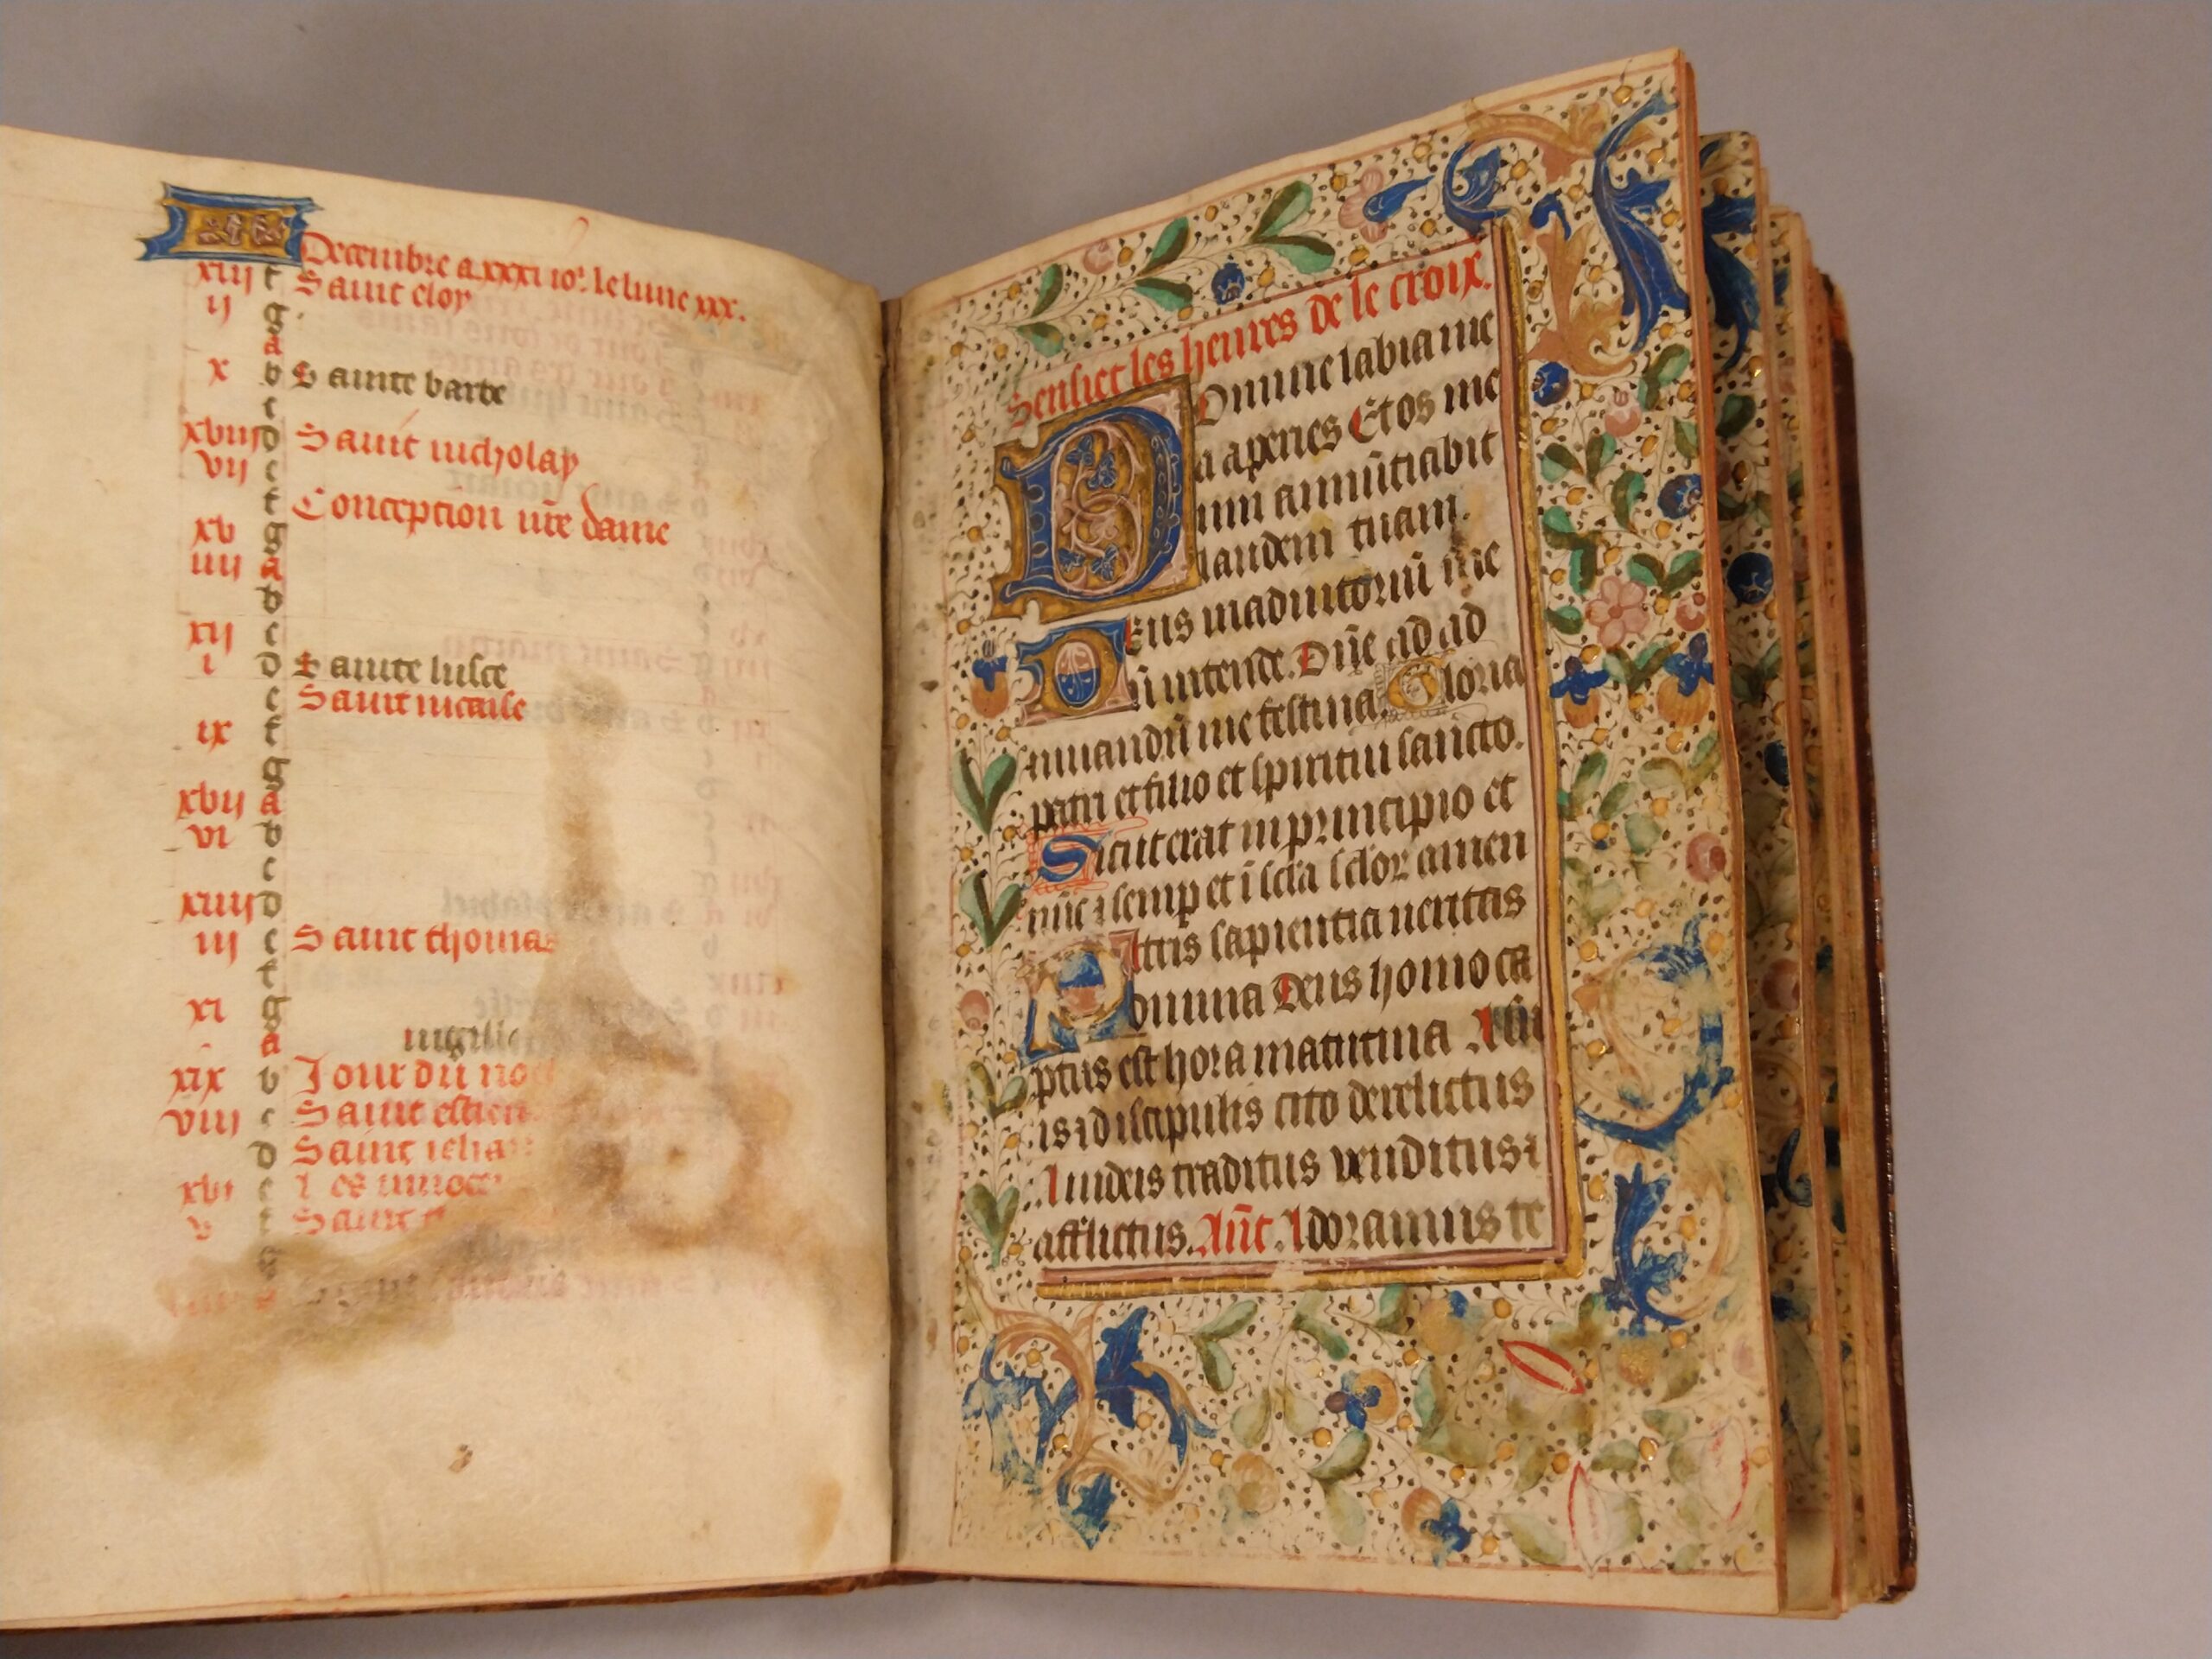 Decembre a xxxi iors. le lune xxx.
xiij f Saint eloy
ij g
a
x b Sainte barbe
c
xviij d Saint nicholay
vij e
f Conception nr̄e dame
xv g
iiij a
b
xij c
i d Sainte lusce
e Saint nicaise
ix f
g
xvij a
vi b
c
xiiij d
iij e Saint thomas
f
xi g
a uigilie
xix b Jour du noel
viij c Saint estien
d Saint jehan
xvi e Les innocen
v f Saint t
g
Sensieut les heures de le croix.
Domine labia me
a aperies Et os me
um annūtiabit
laudem tuam.
Deus in adiutoriū me
ū intende. Dn̄e ad ad
iuuandū me festina. Gloria
patri et filio et spiritui sancto.
Sicut erat in principio et
nūc ⁊ semp et ī scl̄a sclor̄ amen
Patris sapientia ueritas
diuina Deus homo ca
ptus est hora matutina A su
is discipulis cito derelictus
A iudeis traditus venditus ⁊
afflictus. Ant̄ Adoramus te